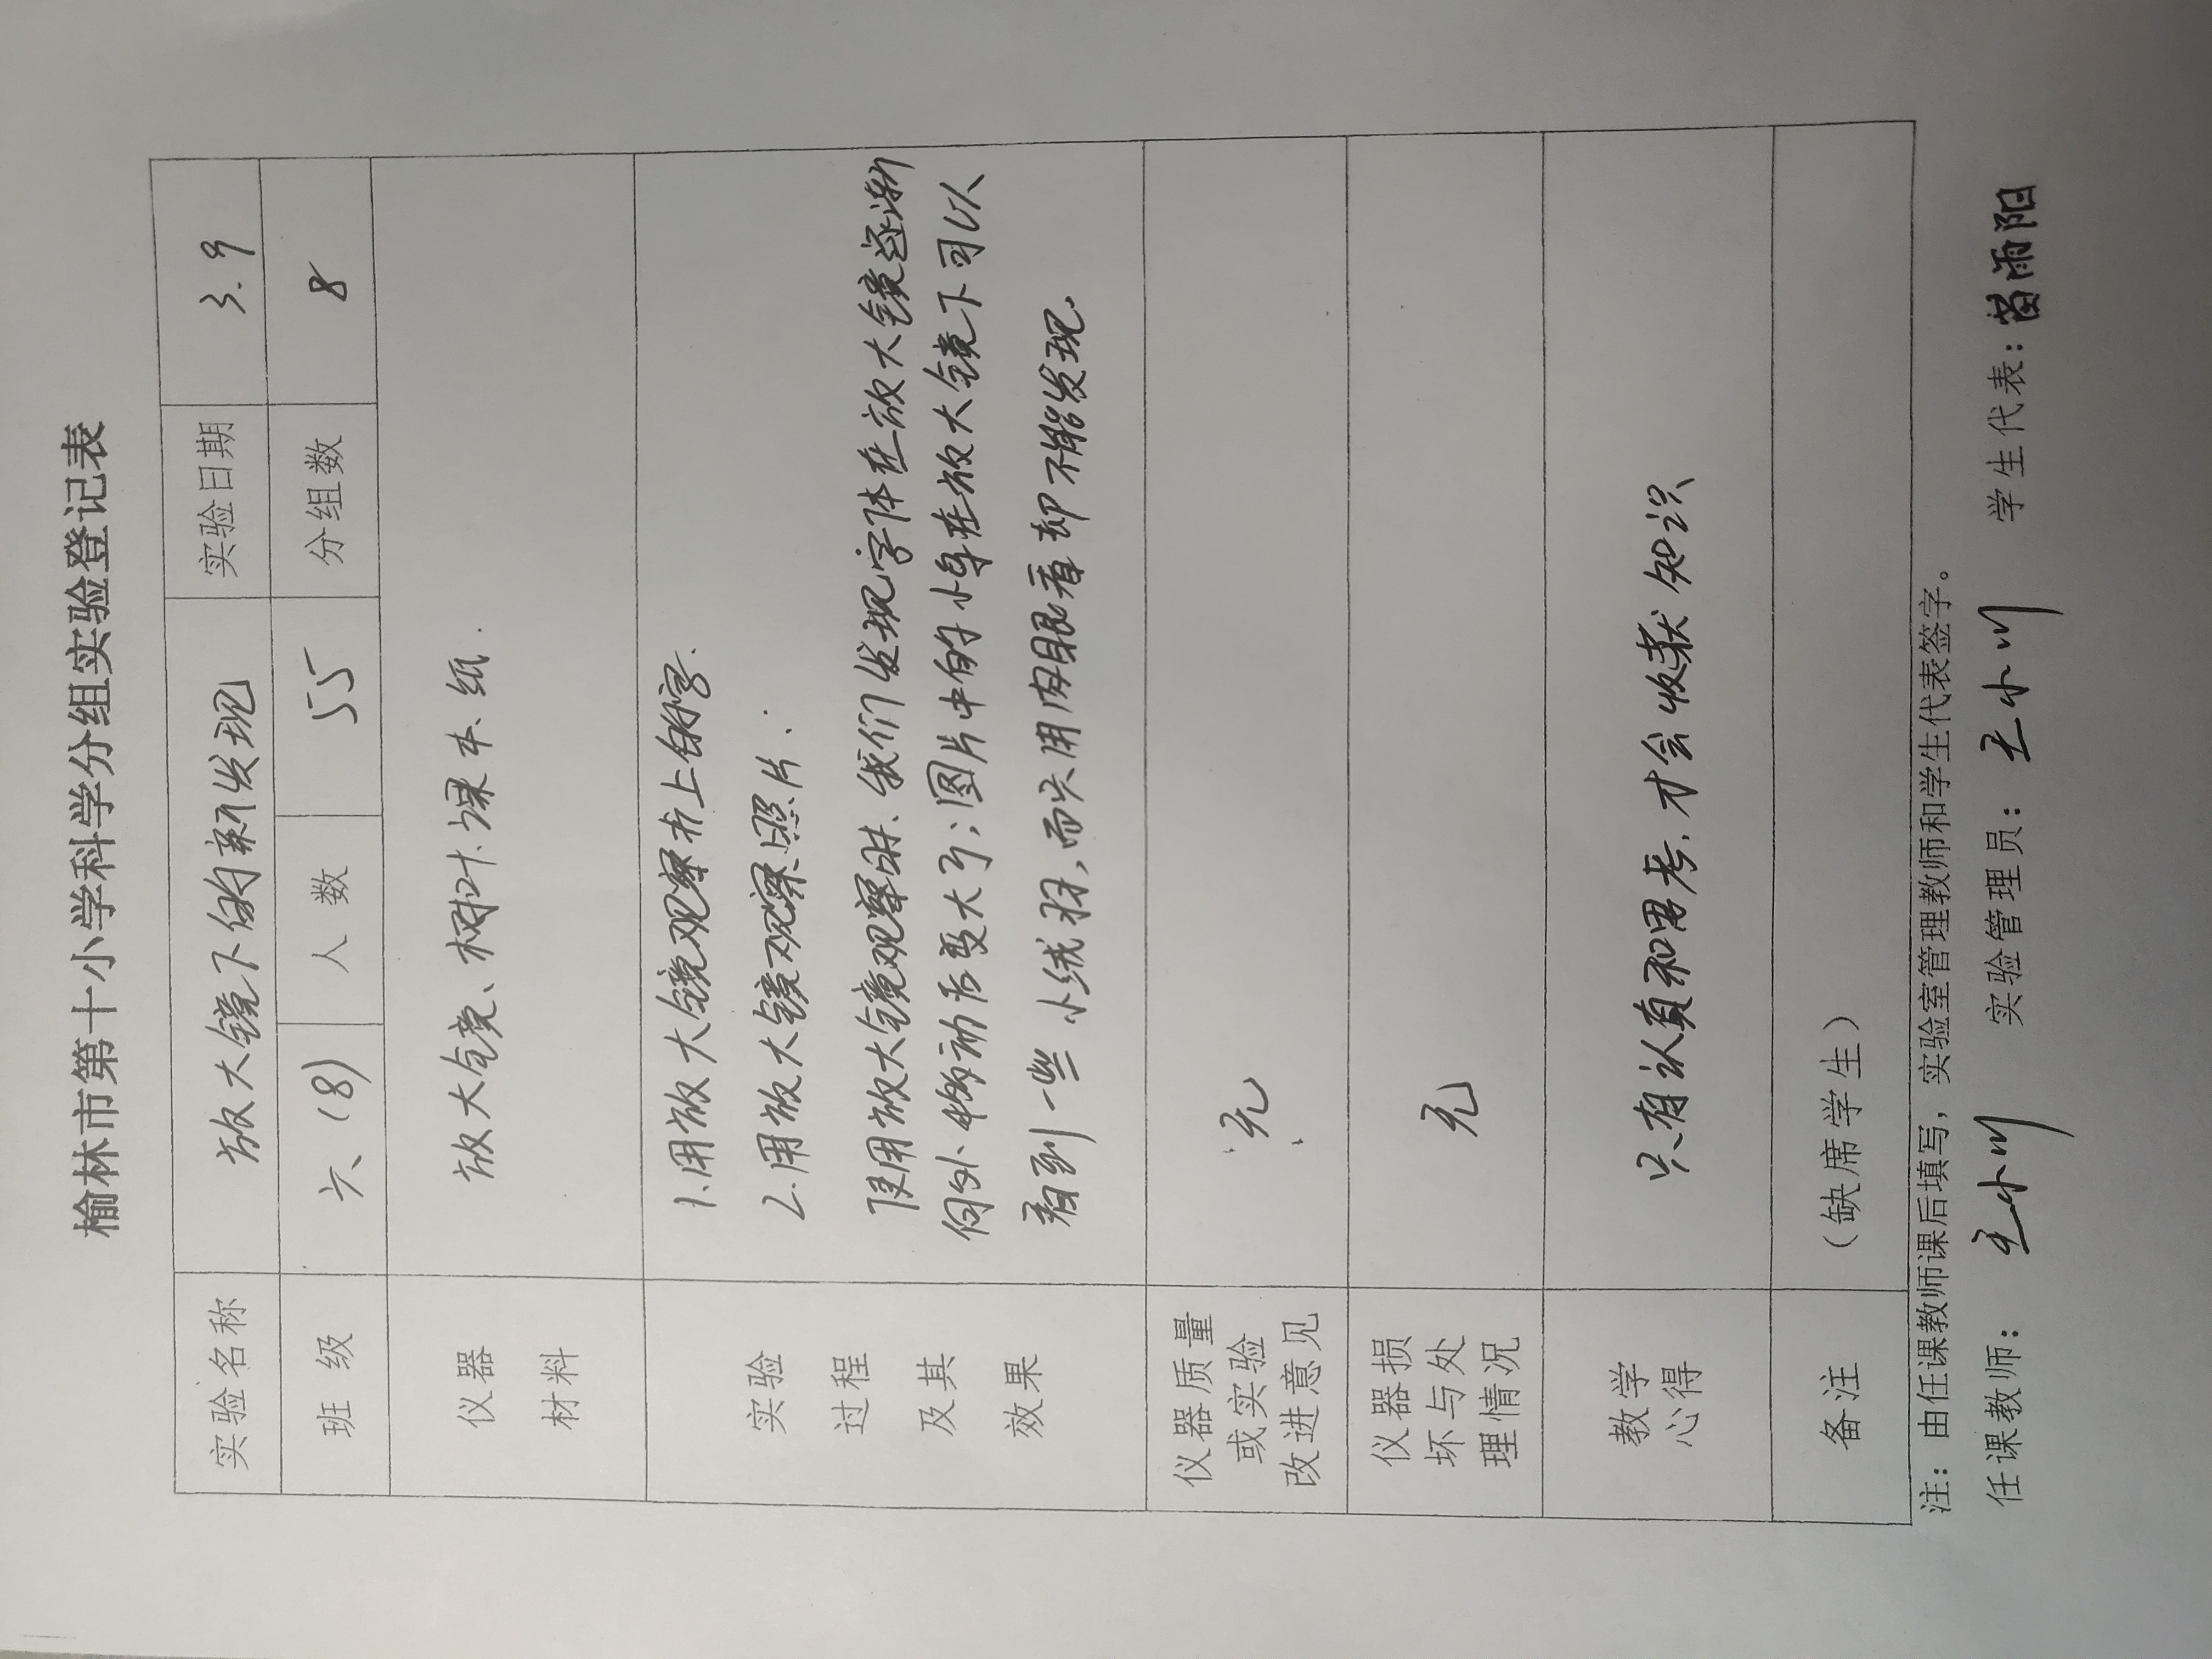 榆林市第十小学科学分组实验登记表
实验名称 放大镜下的新发现 实验日期 3.9
班 级 六(8) 人 数 55 分组数 8
仪器 材料 放大镜、树叶、课本、纸.
实验 过程 及其 效果
1.用放大镜观察书上的字.
2.用放大镜观察照片.
使用放大镜观察时、我们发现字体在放大镜逐渐
向外挪动后变大了;图片中的小鸟在放大镜下可以
看到一些小绒羽,而只用肉眼看却不能发现.
仪器质量 或实验 改进意见 无
仪器损 坏与处 理情况 无
教学 心得 只有认真和思考,才会收获知识
备注 (缺席学生)
注：由任课教师课后填写，实验室管理教师和学生代表签字。
任课教师： 王小川 实验管理员： 王小川 学生代表：苗雨阳